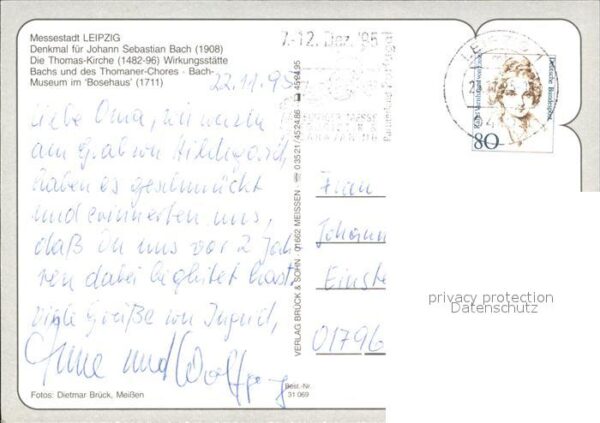 Messestadt LEIPZIG
Denkmal für Johann Sebastian Bach (1908)
Die Thomas-Kirche (1482-96) Wirkungsstätte
Bachs und des Thomaner-Chores · Bach-
Museum im 'Bosehaus' (1711)
22.11.95
Liebe Oma, wir waren
am Grab von Hildegard,
haben es geschmückt
und erinnerten uns,
daß Du uns vor 2 Jah
ren dabei begleitet hast.
Viele Grüße von Ingrid,
Anne und Wolfgang
Fotos: Dietmar Brück, Meißen
VERLAG BRÜCK & SOHN · 01662 MEISSEN
Best.-Nr.
31 069
7.-12. Dez. '95
Deutsche Bundespost
80
Frau
Johann
Einste
01796
privacy protection
Datenschutz